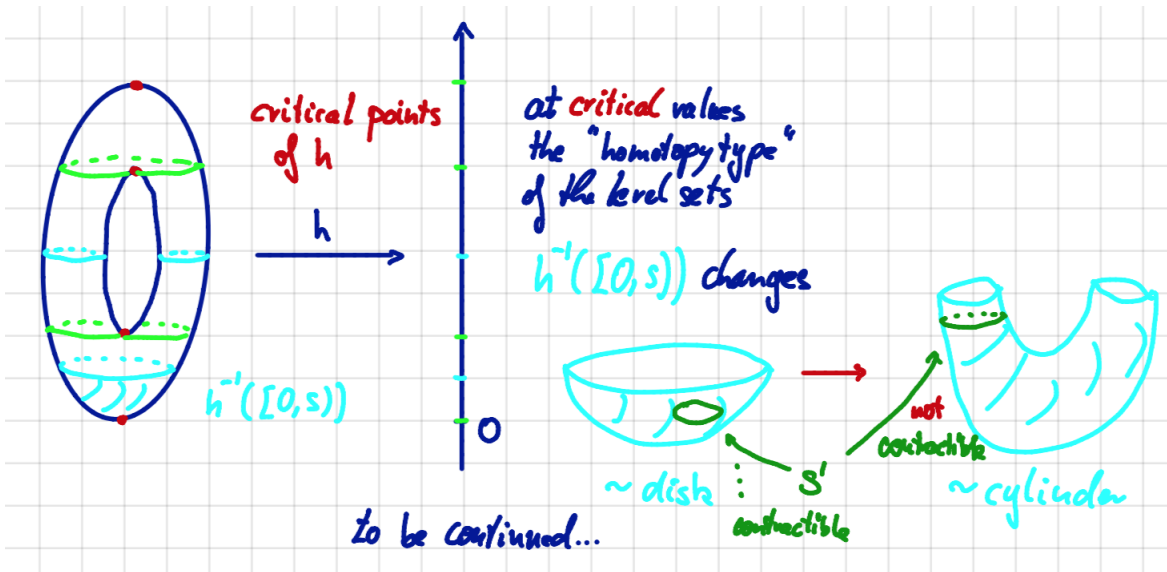 critical points
of h
h
h⁻¹([0,s))
0
at critical values
the "homotopy type"
of the level sets
h⁻¹([0,s)) changes
~ disk
S¹
contractible
not
contractible
~ cylinder
to be continued...